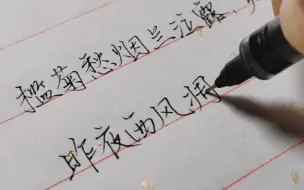 槛菊愁烟兰泣露
昨夜西风凋